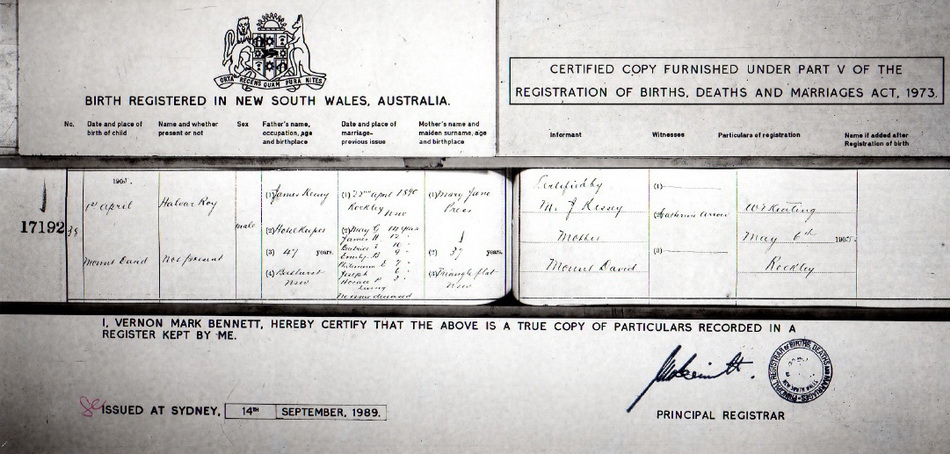 BIRTH REGISTERED IN NEW SOUTH WALES, AUSTRALIA.
CERTIFIED COPY FURNISHED UNDER PART V OF THE
REGISTRATION OF BIRTHS, DEATHS AND MARRIAGES ACT, 1973.
No.
Date and place of
birth of child
Name and whether
present or not
Sex
Father's name,
occupation, age
and birthplace
Date and place of
marriage-
previous issue
Mother's name and
maiden surname, age
and birthplace
Informant
Witnesses
Particulars of registration
Name if added after
Registration of birth
17192
1st April
Mount David
Roy
Not present
male
(1) James
(2) Hotel Keeper
(3) 47 years.
(4) Bathurst
NSW
(1) 22nd April 1890
Rockley
NSW
(2) May G 14 years
James H 12 "
10 "
Emily B 9 "
7 "
Joseph 6 "
Horace P 2 "
living
deceased
(1) Mary Jane
(2) 37 years.
(3) Triangle flat
NSW
Certified by
M. J
Mother
Mount David
(1)
(2)
(3)
May 6th 190
Rockley
I, VERNON MARK BENNETT, HEREBY CERTIFY THAT THE ABOVE IS A TRUE COPY OF PARTICULARS RECORDED IN A
REGISTER KEPT BY ME.
ISSUED AT SYDNEY, 14TH SEPTEMBER, 1989.
PRINCIPAL REGISTRAR